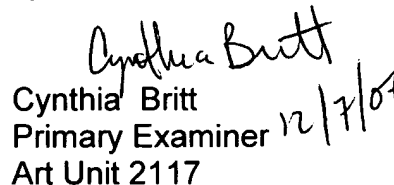 Cynthia Britt
Cynthia Britt
Primary Examiner 12/7/07
Art Unit 2117